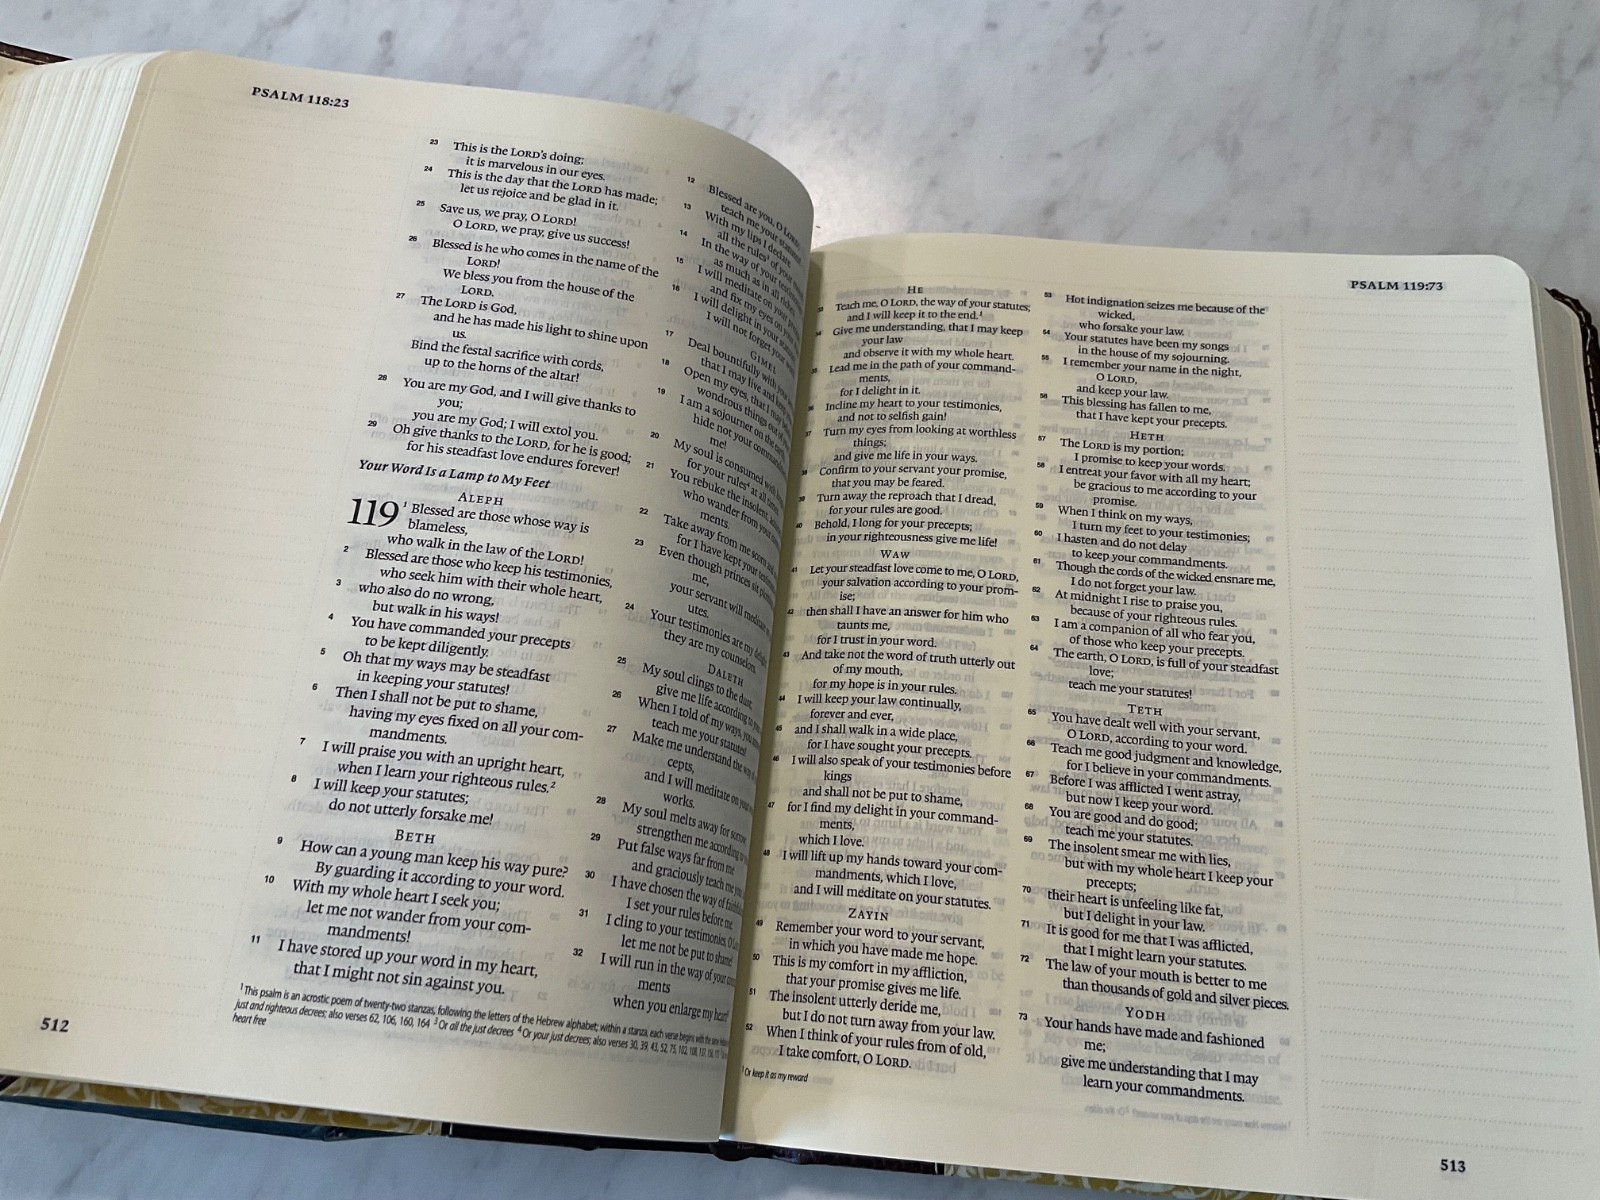 PSALM 118:23
23 This is the LORD's doing;
it is marvelous in our eyes.
24 This is the day that the LORD has made;
let us rejoice and be glad in it.
25 Save us, we pray, O LORD!
O LORD, we pray, give us success!
26 Blessed is he who comes in the name of the
LORD!
We bless you from the house of the
LORD.
27 The LORD is God,
and he has made his light to shine upon
us.
Bind the festal sacrifice with cords,
up to the horns of the altar!
28 You are my God, and I will give thanks to
you;
you are my God; I will extol you.
29 Oh give thanks to the LORD, for he is good;
for his steadfast love endures forever!
Your Word Is a Lamp to My Feet
ALEPH
119 1 Blessed are those whose way is
blameless,
who walk in the law of the LORD!
2 Blessed are those who keep his testimonies,
who seek him with their whole heart,
3 who also do no wrong,
but walk in his ways!
4 You have commanded your precepts
to be kept diligently.
5 Oh that my ways may be steadfast
in keeping your statutes!
6 Then I shall not be put to shame,
having my eyes fixed on all your com-
mandments.
7 I will praise you with an upright heart,
when I learn your righteous rules.2
8 I will keep your statutes;
do not utterly forsake me!
BETH
9 How can a young man keep his way pure?
By guarding it according to your word.
10 With my whole heart I seek you;
let me not wander from your com-
mandments!
11 I have stored up your word in my heart,
that I might not sin against you.
12 Blessed are you, O LORD;
teach me your statutes!
13 With my lips I declare
all the rules3 of your
14 In the way of your testimonies
as much as in all riches.
15 I will meditate on your
and fix my eyes on your
16 I will delight in your statutes;
I will not forget your
GIMEL
17 Deal bountifully with your
that I may live and keep
18 Open my eyes, that I may behold
wondrous things out of
19 I am a sojourner on the earth;
hide not your commandments
me!
20 My soul is consumed with
for your rules4 at all times.
21 You rebuke the insolent,
who wander from your
ments.
22 Take away from me scorn and
for I have kept your testimonies.
23 Even though princes sit plotting
me,
your servant will meditate
utes.
24 Your testimonies are my delight;
they are my counselors.
DALETH
25 My soul clings to the dust;
give me life according to your
26 When I told of my ways, you
teach me your statutes!
27 Make me understand the way
cepts,
and I will meditate on your
works.
28 My soul melts away for sorrow;
strengthen me according to
29 Put false ways far from me
and graciously teach me
30 I have chosen the way of
I set your rules before me.
31 I cling to your testimonies, O
let me not be put to shame!
32 I will run in the way of your
ments
when you enlarge my heart!
1 This psalm is an acrostic poem of twenty-two stanzas, following the letters of the Hebrew alphabet; within a stanza, each verse begins with the same
just and righteous decrees; also verses 62, 106, 160, 164 3 Or all the just decrees 4 Or your just decrees; also verses 30, 39, 43, 52, 75, 102, 108, 137, 156,
heart free
512
PSALM 119:73
HE
33 Teach me, O LORD, the way of your statutes;
and I will keep it to the end.1
34 Give me understanding, that I may keep
your law
and observe it with my whole heart.
35 Lead me in the path of your command-
ments,
for I delight in it.
36 Incline my heart to your testimonies,
and not to selfish gain!
37 Turn my eyes from looking at worthless
things;
and give me life in your ways.
38 Confirm to your servant your promise,
that you may be feared.
39 Turn away the reproach that I dread,
for your rules are good.
40 Behold, I long for your precepts;
in your righteousness give me life!
WAW
41 Let your steadfast love come to me, O LORD,
your salvation according to your prom-
ise;
42 then shall I have an answer for him who
taunts me,
for I trust in your word.
43 And take not the word of truth utterly out
of my mouth,
for my hope is in your rules.
44 I will keep your law continually,
forever and ever,
45 and I shall walk in a wide place,
for I have sought your precepts.
46 I will also speak of your testimonies before
kings
and shall not be put to shame,
47 for I find my delight in your command-
ments,
which I love.
48 I will lift up my hands toward your com-
mandments, which I love,
and I will meditate on your statutes.
ZAYIN
49 Remember your word to your servant,
in which you have made me hope.
50 This is my comfort in my affliction,
that your promise gives me life.
51 The insolent utterly deride me,
but I do not turn away from your law.
52 When I think of your rules from of old,
I take comfort, O LORD.
53 Hot indignation seizes me because of the
wicked,
who forsake your law.
54 Your statutes have been my songs
in the house of my sojourning.
55 I remember your name in the night,
O LORD,
and keep your law.
56 This blessing has fallen to me,
that I have kept your precepts.
HETH
57 The LORD is my portion;
I promise to keep your words.
58 I entreat your favor with all my heart;
be gracious to me according to your
promise.
59 When I think on my ways,
I turn my feet to your testimonies;
60 I hasten and do not delay
to keep your commandments.
61 Though the cords of the wicked ensnare me,
I do not forget your law.
62 At midnight I rise to praise you,
because of your righteous rules.
63 I am a companion of all who fear you,
of those who keep your precepts.
64 The earth, O LORD, is full of your steadfast
love;
teach me your statutes!
TETH
65 You have dealt well with your servant,
O LORD, according to your word.
66 Teach me good judgment and knowledge,
for I believe in your commandments.
67 Before I was afflicted I went astray,
but now I keep your word.
68 You are good and do good;
teach me your statutes.
69 The insolent smear me with lies,
but with my whole heart I keep your
precepts;
70 their heart is unfeeling like fat,
but I delight in your law.
71 It is good for me that I was afflicted,
that I might learn your statutes.
72 The law of your mouth is better to me
than thousands of gold and silver pieces.
YODH
73 Your hands have made and fashioned
me;
give me understanding that I may
learn your commandments.
1 Or keep it as my reward
513